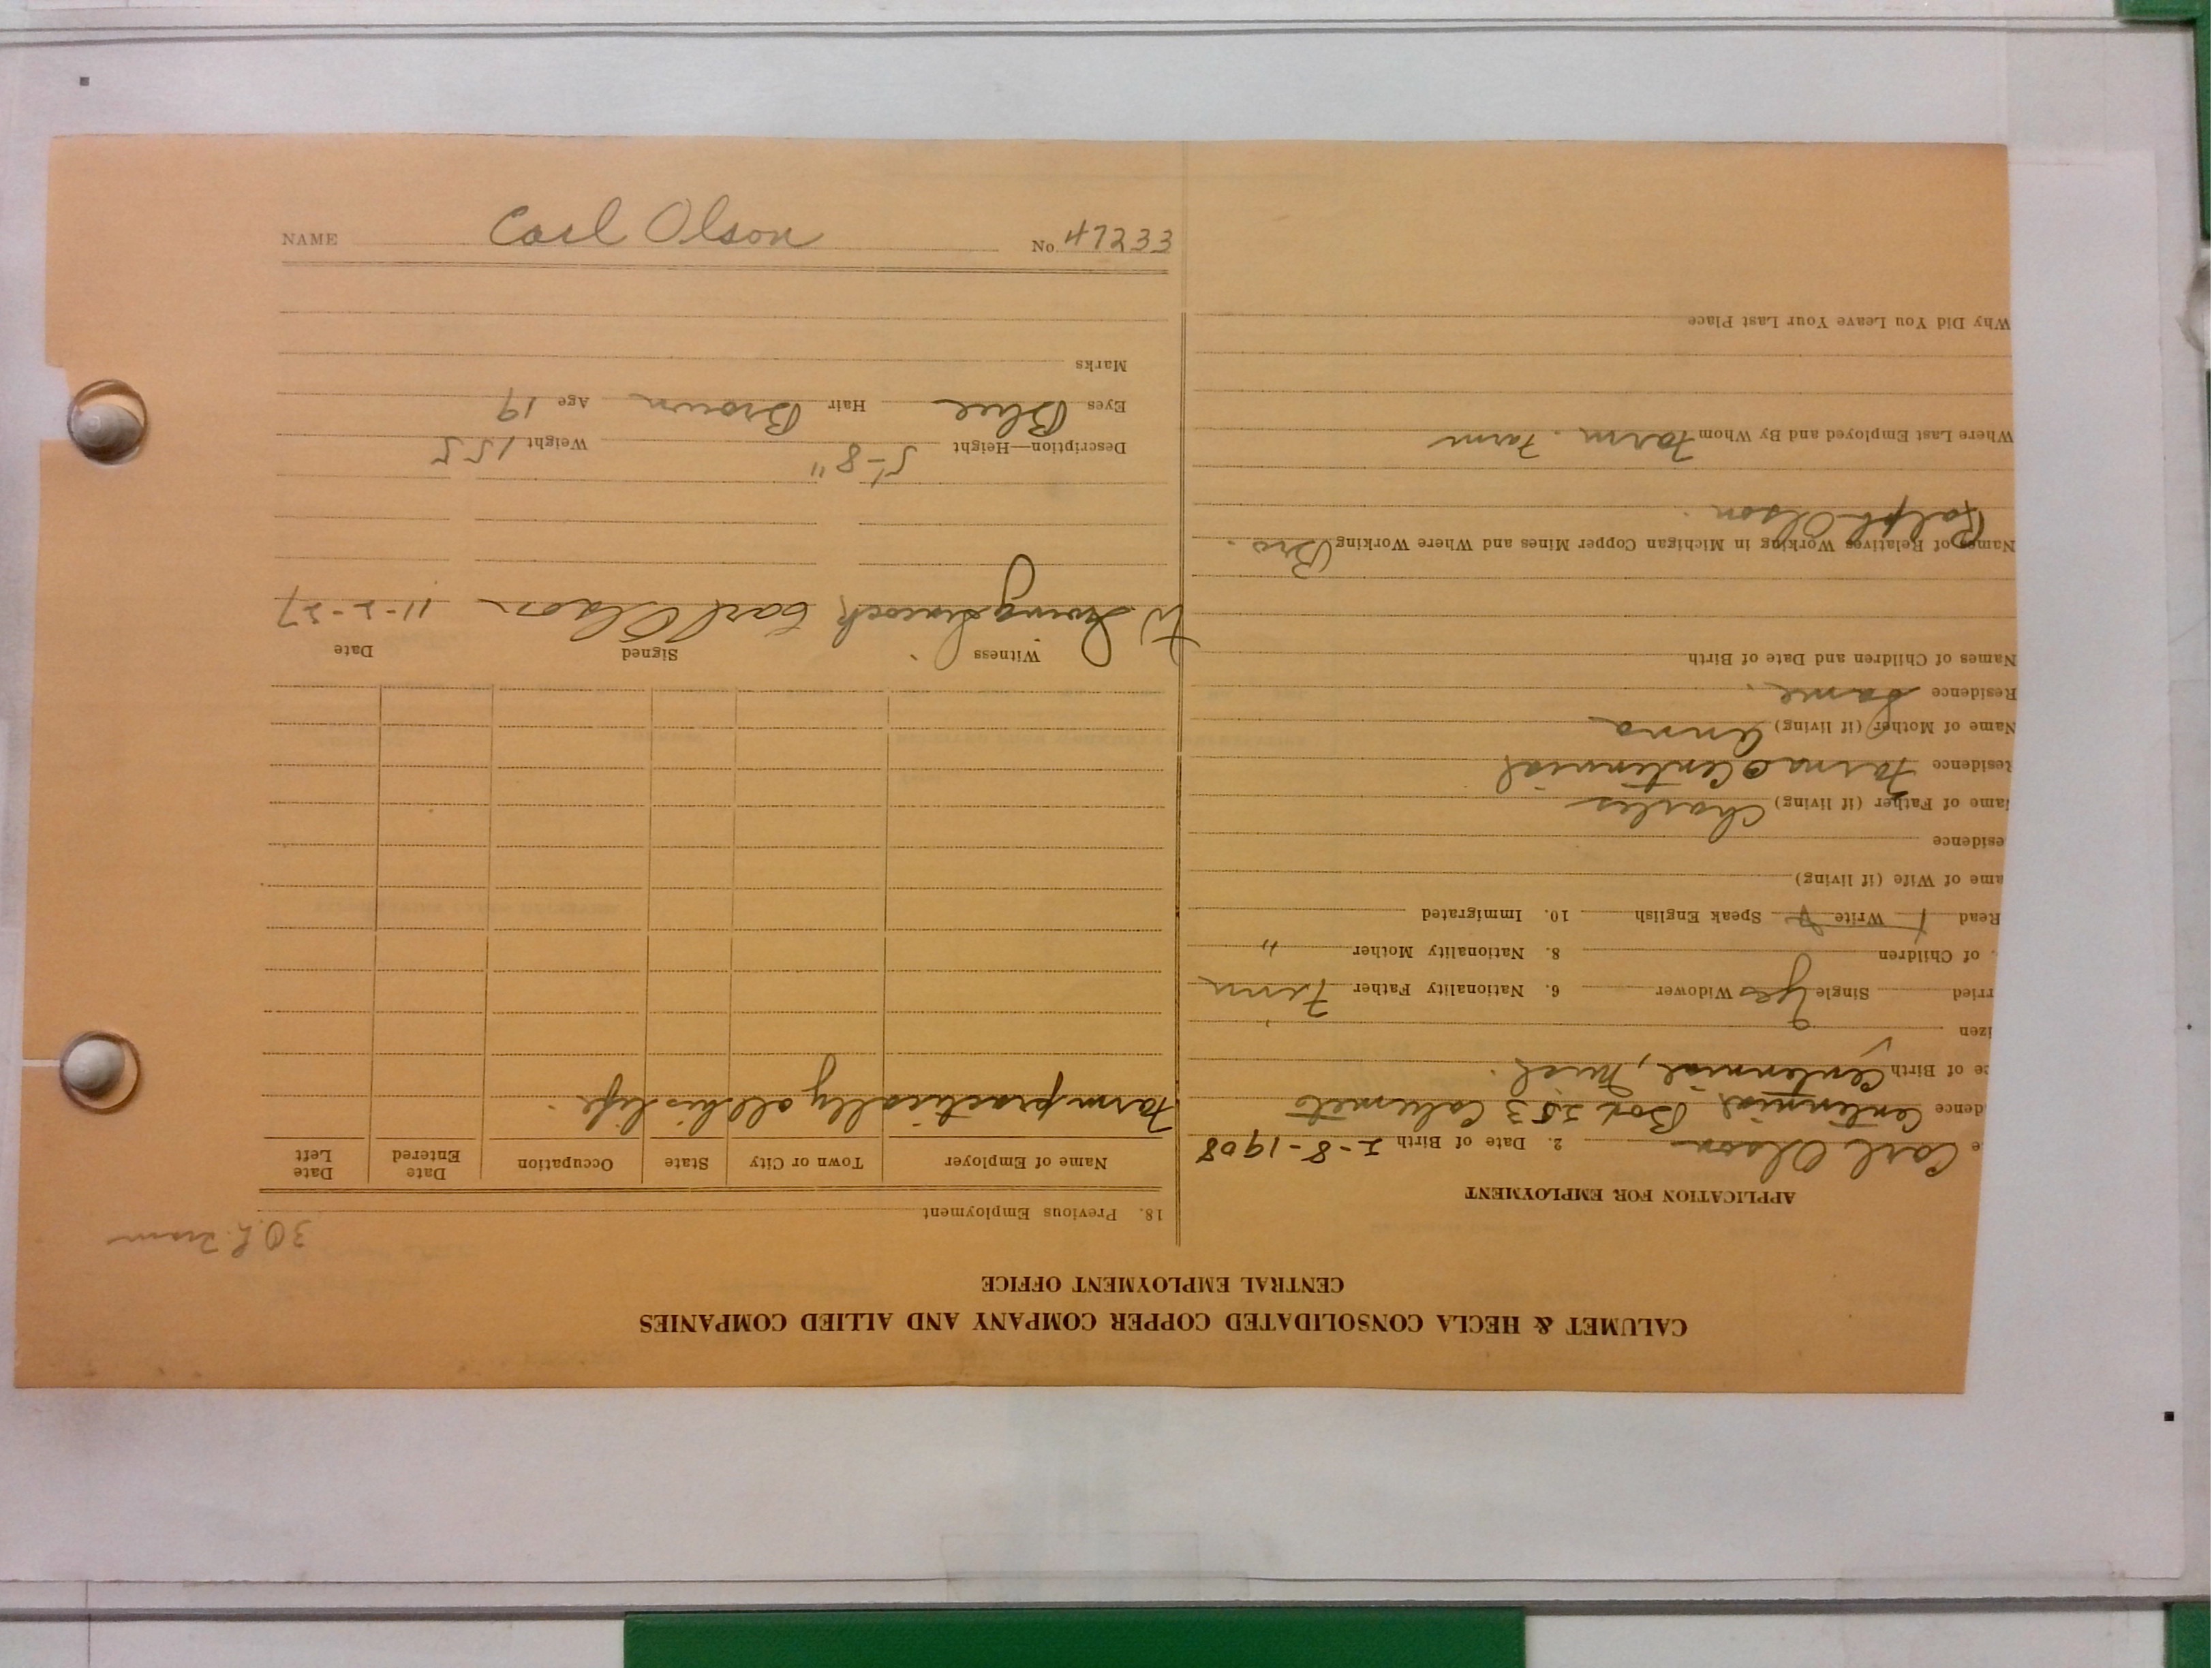 CALUMET & HECLA CONSOLIDATED COPPER COMPANY AND ALLIED COMPANIES
CENTRAL EMPLOYMENT OFFICE
APPLICATION FOR EMPLOYMENT
e Carl Olson 2. Date of Birth 2-8-1908
dence Centennial Box 253 Calumet
ce of Birth Centennial, Mich.
izen
rried Single Yes Widower 6. Nationality Father Finn
. of Children 8. Nationality Mother "
Read Write Speak English 10. Immigrated
ame of Wife (if living)
esidence
ame of Father (if living) Charles
Residence Farm Centennial
Name of Mother (if living) Anna
Residence Same.
Names of Children and Date of Birth
Names of Relatives Working in Michigan Copper Mines and Where Working Bro.
Ralph Olson.
Where Last Employed and By Whom Farm. Farm
Why Did You Leave Your Last Place
18. Previous Employment
Name of Employer Town or City State Occupation Date Entered Date Left
Farm practically all his life.
Witness Signed Date
Carl Olson 11-2-27
Description—Height 5'-8" Weight 155
Eyes Blue Hair Brown Age 19
Marks
NAME Carl Olson No. 47233